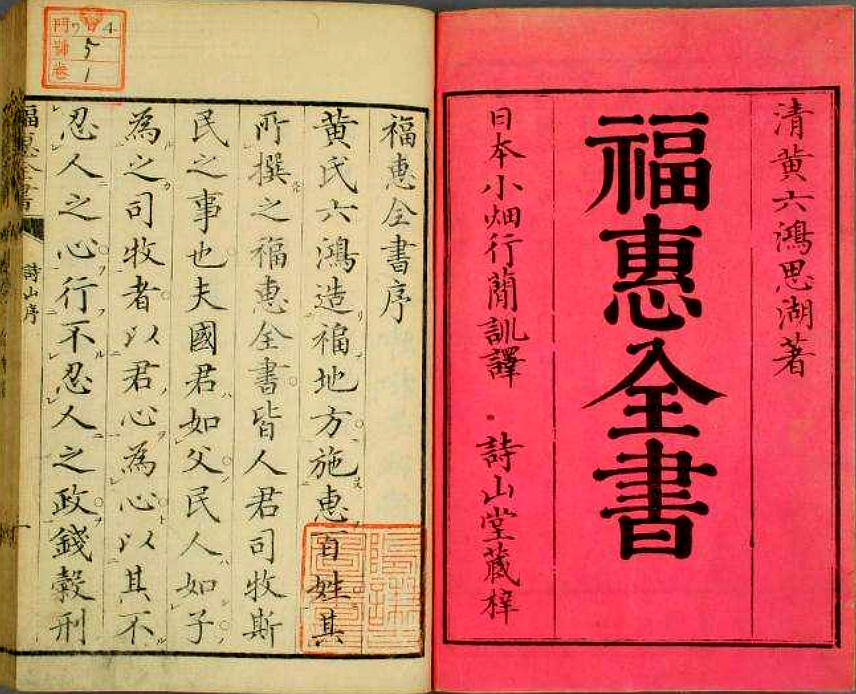 清黄六鴻思湖著
福惠全書
日本小畑行簡訓譯 · 詩山堂藏梓
福惠全書序
黄氏六鴻造福地方施惠百姓其
所撰之福惠全書皆人君司牧斯
民之事也夫國君如父民人如子
為之司牧者以君心為心以其不
忍人之心行不忍人之政錢穀刑
福惠全書
詩山序
門
號
卷
5
1